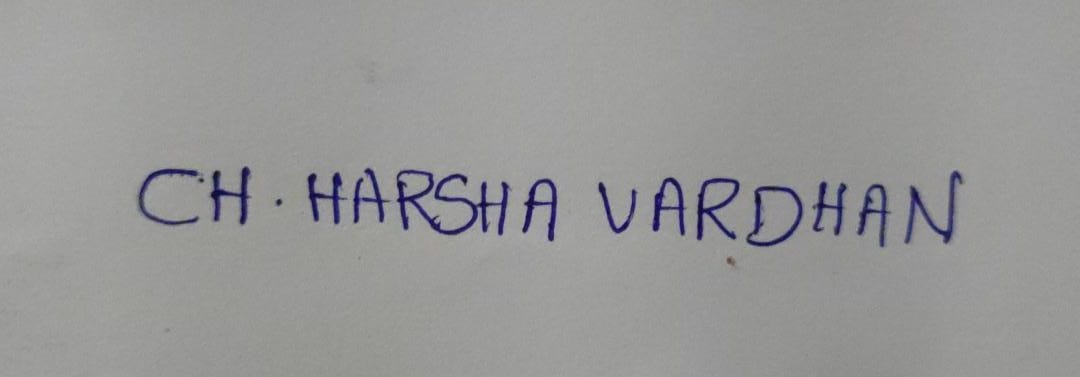 CH. HARSHA VARDHAN